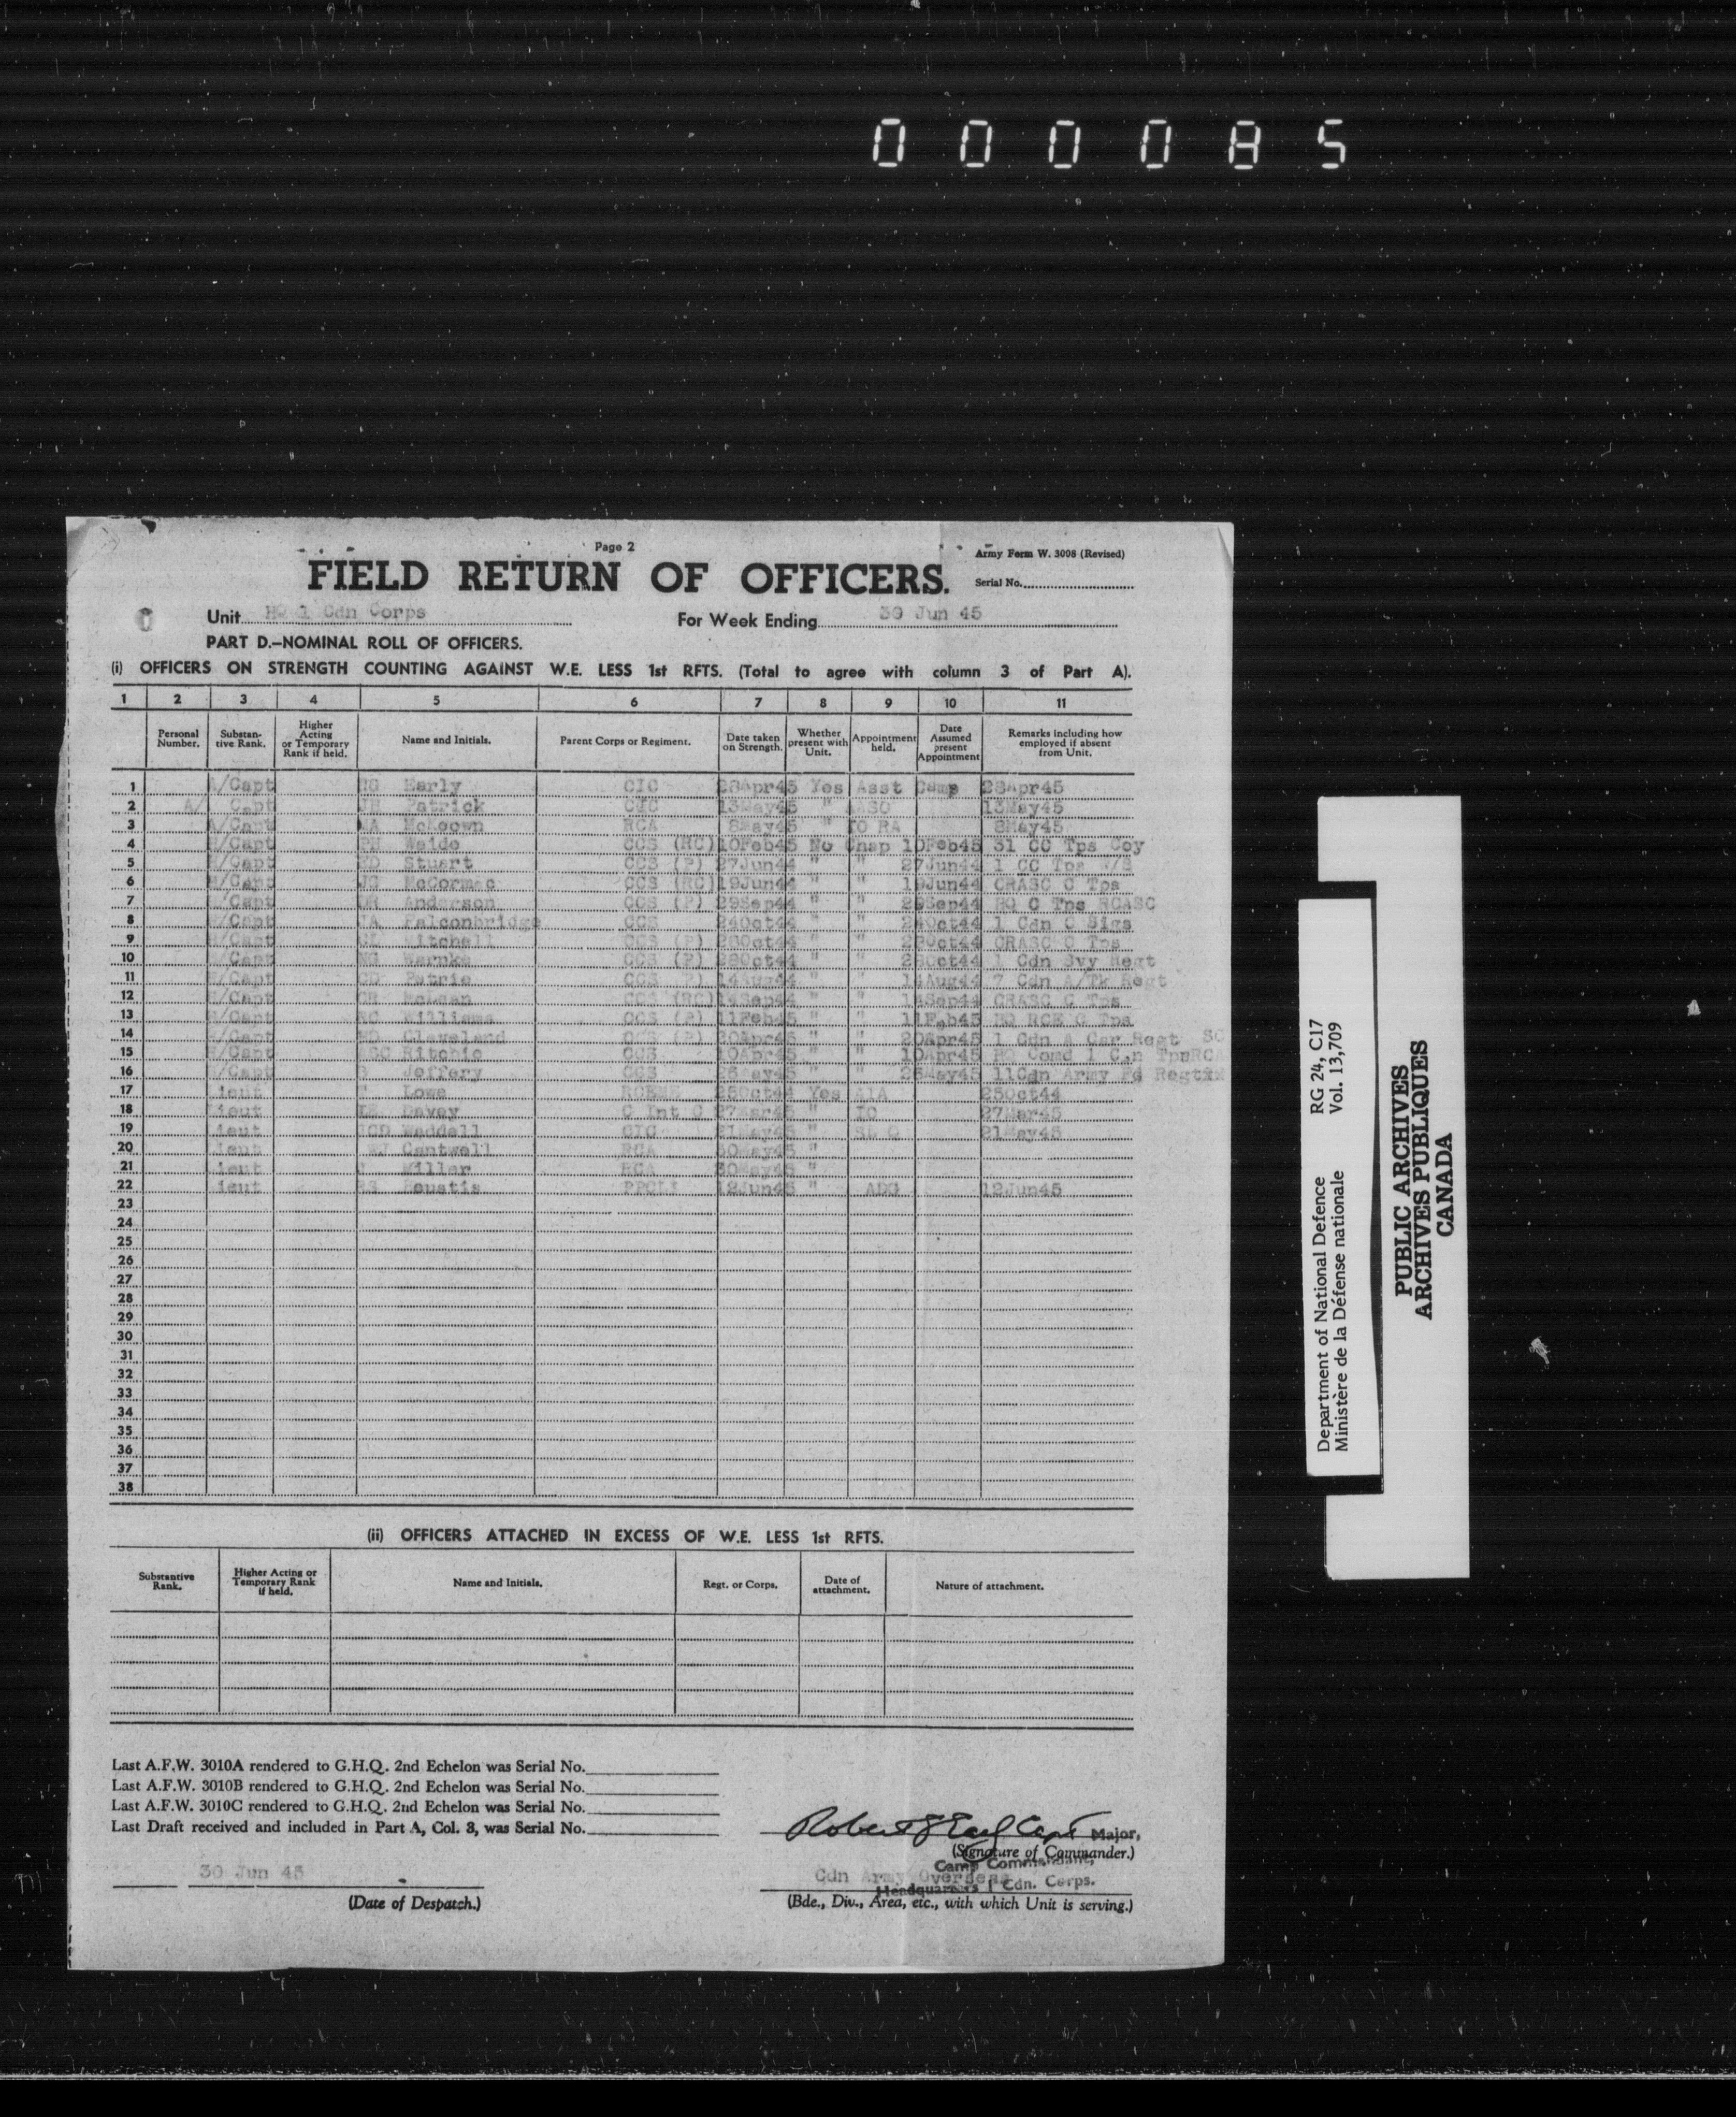 000085
Page 2
Army Form W. 3008 (Revised)
FIELD RETURN OF OFFICERS.
Serial No.
Unit HQ 1 Cdn Corps
For Week Ending 30 Jun 45
PART D.—NOMINAL ROLL OF OFFICERS.
(i) OFFICERS ON STRENGTH COUNTING AGAINST W.E. LESS 1st RFTS. (Total to agree with column 3 of Part A).
1 2 3 4 5 6 7 8 9 10 11
Personal Number. Substantive Rank. Higher Acting or Temporary Rank if held. Name and Initials. Parent Corps or Regiment. Date taken on Strength. Whether present with Unit. Appointment held. Date Assumed present Appointment Remarks including how employed if absent from Unit.
1 A/Capt Early CIC 28Apr45 Yes Asst Camp 28Apr45
2 A/ Capt Patrick CIC 13May45 " 13May45
3 A/Capt McKeown RCA 8May45 " IO RA 8May45
4 H/Capt Weido CCS (RC) 10Feb45 No Chap 10Feb45 31 CC Tps Coy
5 H/Capt Stuart CCS (P) 27Jun44 " " 27Jun44 1 CC Tps
6 H/Capt McCormac CCS (RC) 19Jun44 " " 19Jun44 CRASC C Tps
7 H/Capt Anderson CCS (P) 29Sep44 " " 29Sep44 HQ C Tps RCASC
8 H/Capt Falconbridge CCS 24Oct44 " " 24Oct44 1 Cdn C Sigs
9 H/Capt Mitchell CCS (P) " " CRASC C Tps
10 H/Capt Warnke CCS (P) 28Oct44 " " 28Oct44 1 Cdn Svy Regt
11 H/Capt Petrie CCS (P) 14Aug44 " " 14Aug44 7 Cdn A/Tk Regt
12 H/Capt McLean CCS (RC) 14Sep44 " " 14Sep44 CRASC C Tps
13 H/Capt Williams CCS (P) 11Feb45 " " 11Feb45 HQ RCE C Tps
14 H/Capt Cleveland CCS (P) 20Apr45 " " 20Apr45 1 Cdn A Car Regt
15 H/Capt Ritchie CCS 10Apr45 " " 10Apr45 HQ Comd 1 Cdn Tps RCA
16 H/Capt Jeffery CCS 26May45 " " 26May45 11 Cdn Army Fd Regt
17 Lieut Lowe RCEME 25Oct44 Yes AIA 25Oct44
18 Lieut Davey C Int C 27Mar45 " IO 27Mar45
19 Lieut Weddell CIC 21May45 " 21May45
20 Lieut Cantwell RCA 30May45 "
21 Lieut Miller RCA 30May45 "
22 Lieut Eoustis PPCLI 12Jun45 " ADC 12Jun45
23
24
25
26
27
28
29
30
31
32
33
34
35
36
37
38
(ii) OFFICERS ATTACHED IN EXCESS OF W.E. LESS 1st RFTS.
Substantive Rank. Higher Acting or Temporary Rank if held. Name and Initials. Regt. or Corps. Date of attachment. Nature of attachment.
Last A.F.W. 3010A rendered to G.H.Q. 2nd Echelon was Serial No.
Last A.F.W. 3010B rendered to G.H.Q. 2nd Echelon was Serial No.
Last A.F.W. 3010C rendered to G.H.Q. 2nd Echelon was Serial No.
Last Draft received and included in Part A, Col. 3, was Serial No.
Robert G Early Capt Major,
(Signature of Commander.)
Camp Commandant,
30 Jun 45
Cdn Army Overseas
Headquarters 1 Cdn. Corps.
(Date of Despatch.)
(Bde., Div., Area, etc., with which Unit is serving.)
Department of National Defence RG 24, C17
Ministère de la Défense nationale Vol. 13,709
PUBLIC ARCHIVES
ARCHIVES PUBLIQUES
CANADA